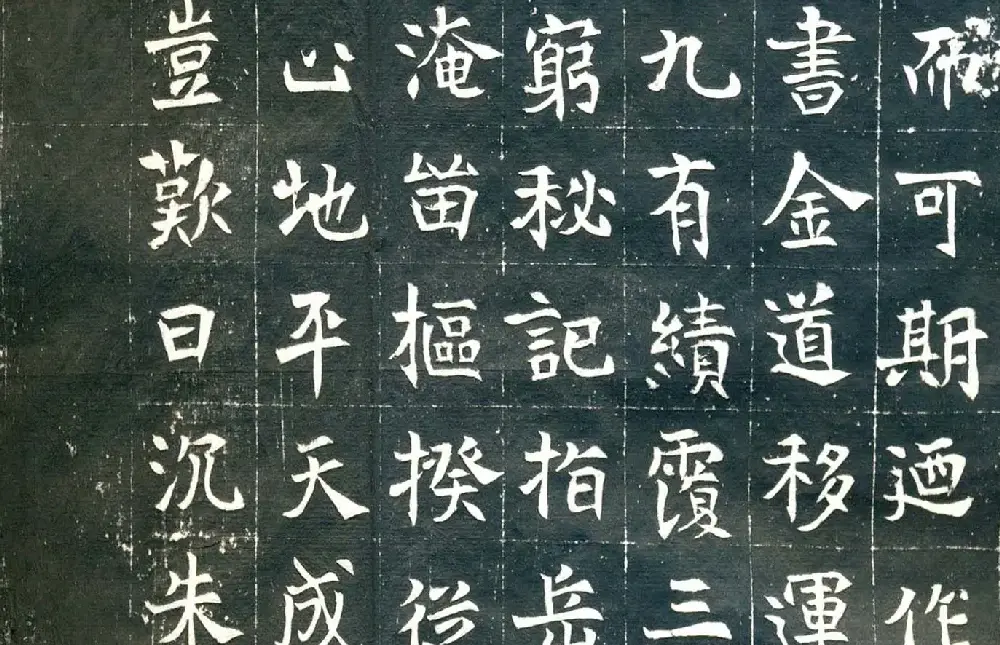 而可期迺作
書金道移運
九有績覆三
窮秘記指岳
淹畄樞揆從
地平天成
豈歎日沉朱